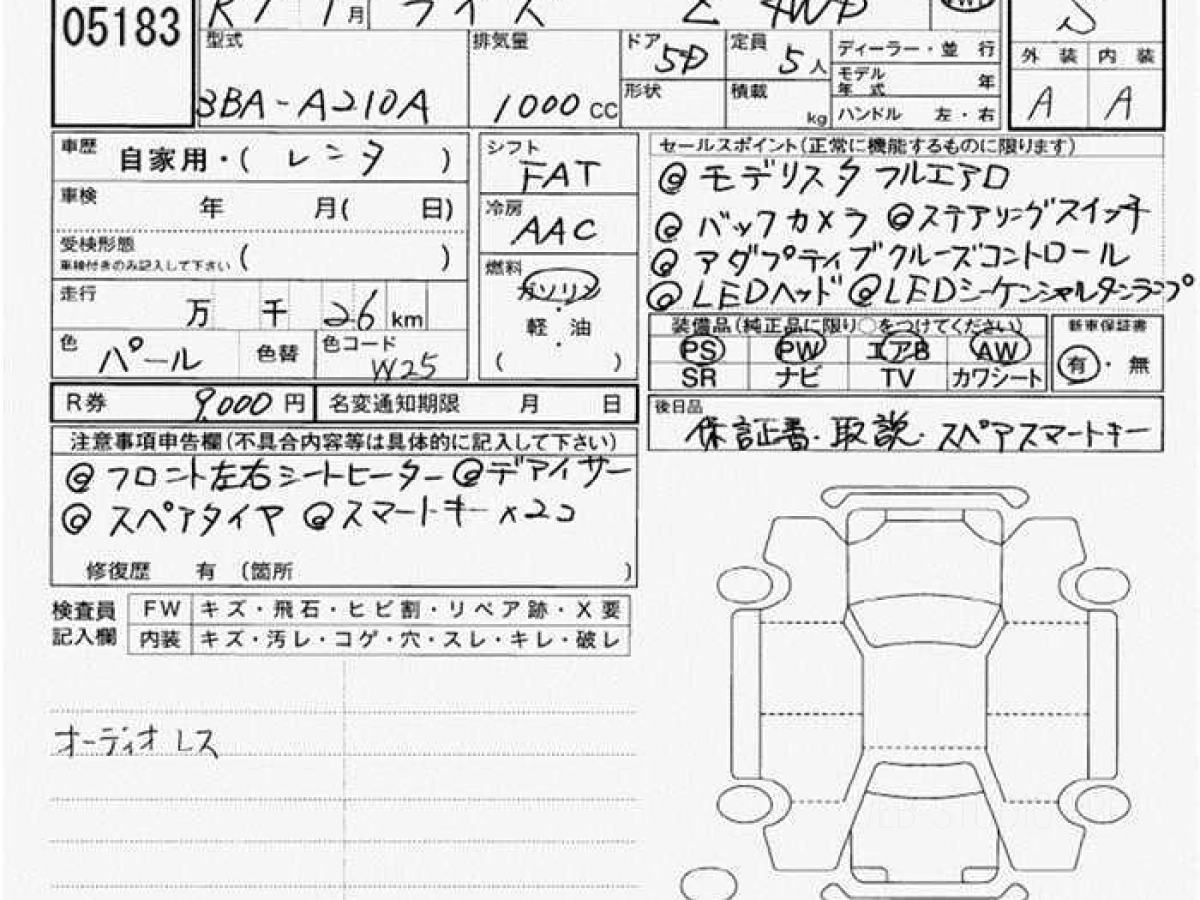 05183
月 ライズ Z 4WD S
型式 3BA-A210A
排気量 1000 CC
ドア 5D
定員 5 人
形状
積載 kg
ディーラー・並 行
モデル年式 年
ハンドル 左・右
外 装 内 装
A A
車歴 自家用・( レンタ )
車検 年 月( 日)
受検形態
車検付きのみ記入して下さい ( )
走行 万 千 26 km
色 パール 色替 色コード W25
シフト FAT
冷房 AAC
燃料
ガソリン
・
軽・油
・
( )
セールスポイント(正常に機能するものに限ります)
@ モデリスタ フルエアロ
@ バックカメラ @ステアリングスイッチ
@ アダプティブクルーズコントロール
@ LEDヘッド @LEDシーケンシャルターンランプ
装備品(純正品に限り○をつけてください)
PS PW エアB AW
SR ナビ TV カワシート
新車保証書
有・無
R券 9,000 円 名変通知期限 月 日
後日品
保証書・取説・スペアスマートキー
注意事項申告欄(不具合内容等は具体的に記入して下さい)
@ フロント左右シートヒーター @デアイサー
@ スペアタイヤ @スマートキー ×2コ
修復歴 有 (箇所 )
検査員記入欄
FW キズ・飛石・ヒビ割・リペア跡・X要
内装 キズ・汚レ・コゲ・穴・スレ・キレ・破レ
オーディオレス